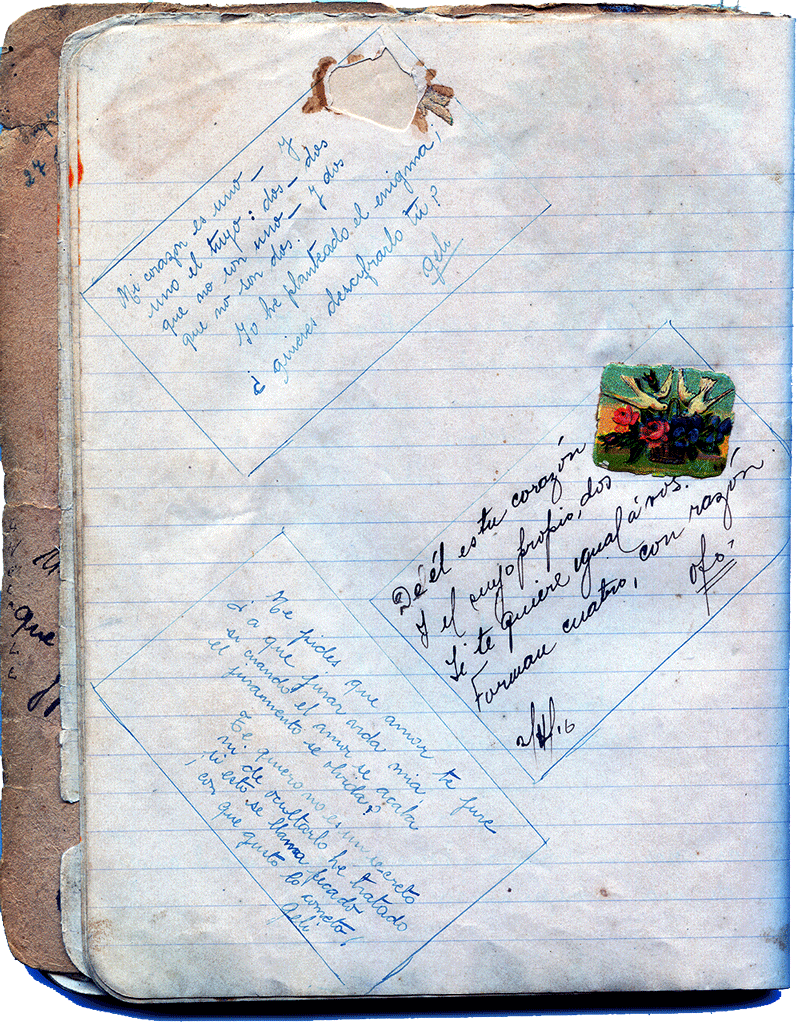 Mi corazón es uno — Y
uno el tuyo: dos — dos
que no son uno — Y dos
que no son dos.
Yo he planteado el enigma,
¿quieres descifrarlo tú?
Geli
De él es tu corazón
Y el suyo propio, dos
Si te quiere igual á vos.
Forman cuatro, con razón
Ofo.
Me pides que amor te jure
¿a que jurar vida mia,
si cuando el amor se acaba
el juramento se olvida?
Te quiero no es un secreto
ni de ocultarlo he tratado
si esto se llama pecado
¡con que gusto lo cometo!
Geli
27
que